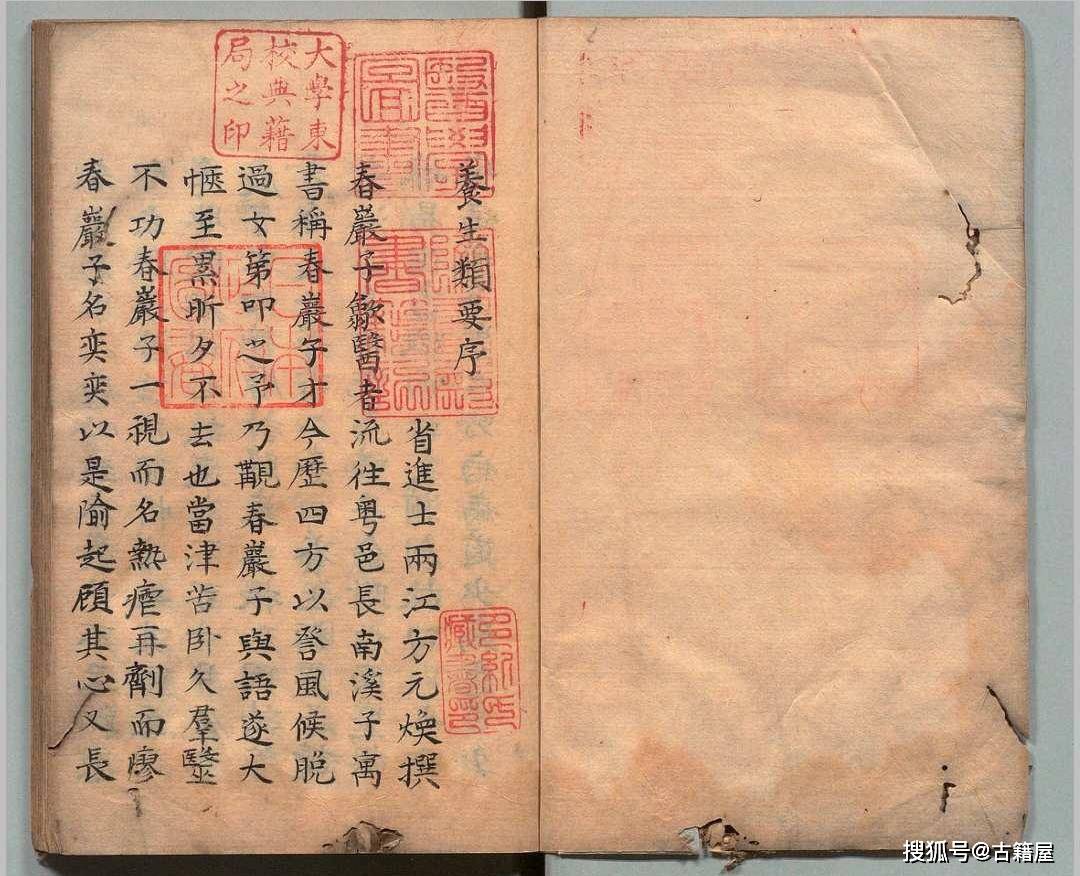 大學東
校典藉
局之印
養生類要序
省進士兩江方元煥撰
春巖子歙醫者流往粵邑長南溪子寓
書稱春巖子才今歷四方以咨風候脫
過女第叩之予乃覯春巖子與語遂大
愜至累昕夕不去也當津苦卧久羣毉
不功春巖子一視而名熱瘧再劑而廖
春巖子名奕奕以是隃起顧其心又長
多紀氏
藏書印
搜狐号@古籍屋